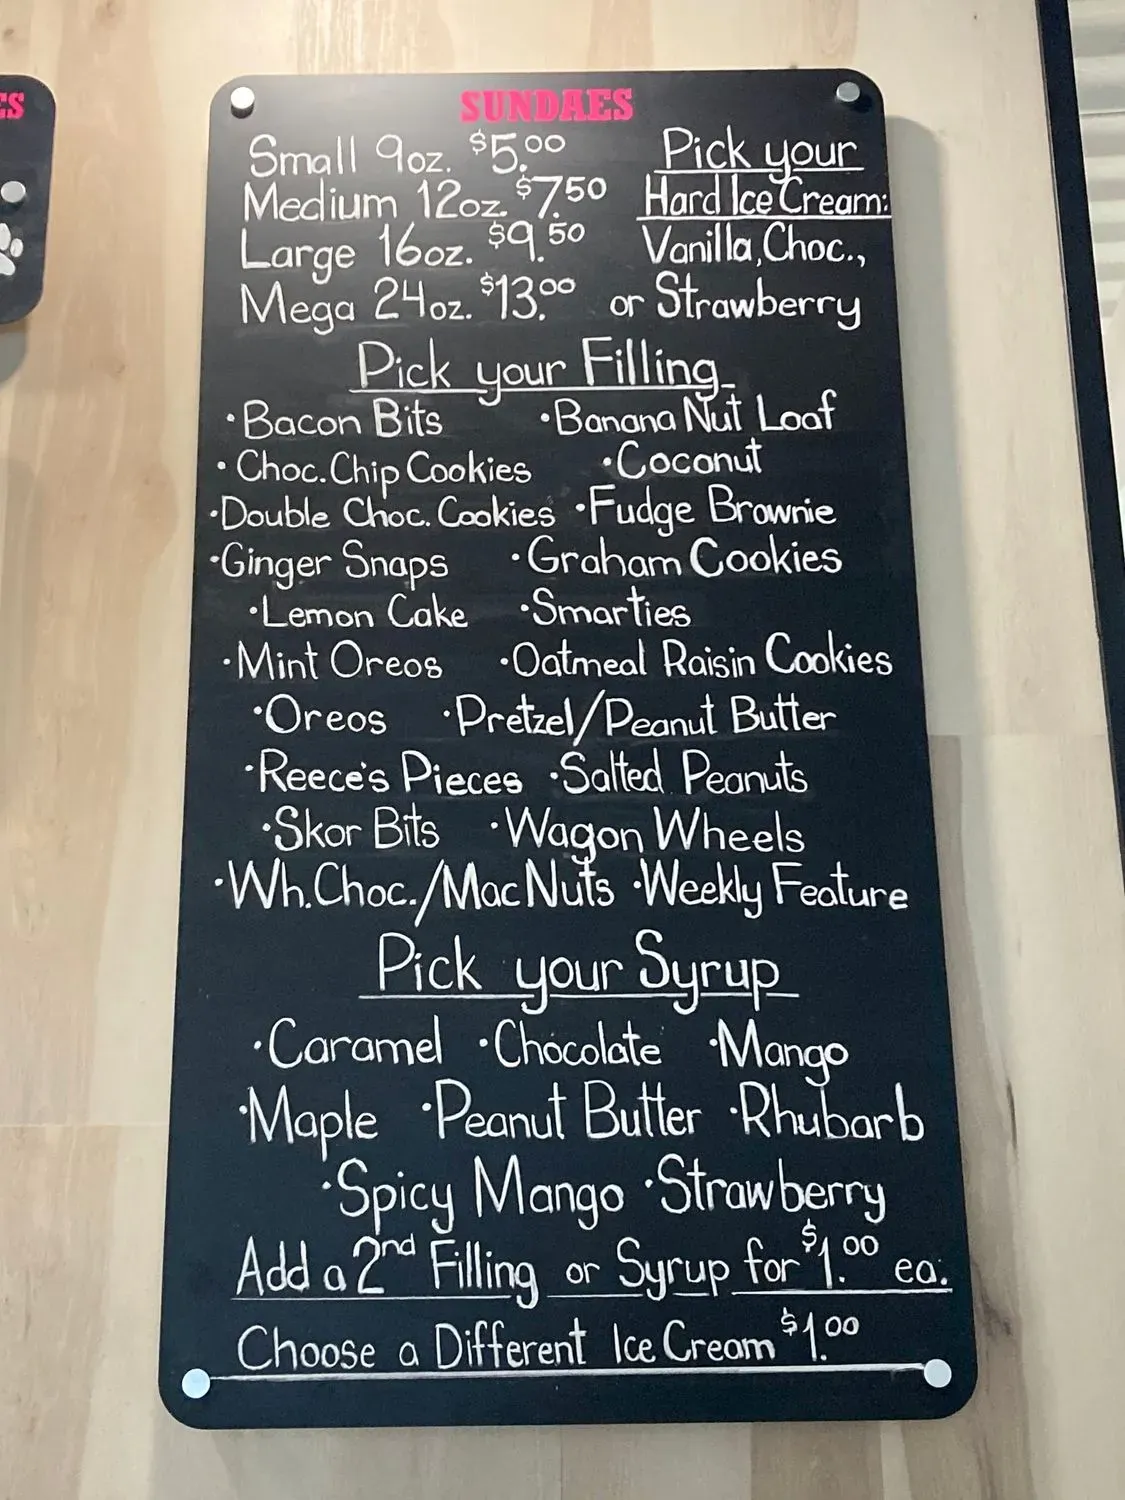 ES
SUNDAES
Small 9oz. $5.00
Medium 12oz. $7.50
Large 16oz. $9.50
Mega 24oz. $13.00
Pick your
Hard Ice Cream:
Vanilla, Choc.,
or Strawberry
Pick your Filling
·Bacon Bits ·Banana Nut Loaf
·Choc. Chip Cookies ·Coconut
·Double Choc. Cookies ·Fudge Brownie
·Ginger Snaps ·Graham Cookies
·Lemon Cake ·Smarties
·Mint Oreos ·Oatmeal Raisin Cookies
·Oreos ·Pretzel/Peanut Butter
·Reece's Pieces ·Salted Peanuts
·Skor Bits ·Wagon Wheels
·Wh. Choc./Mac Nuts ·Weekly Feature
Pick your Syrup
·Caramel ·Chocolate ·Mango
·Maple ·Peanut Butter ·Rhubarb
·Spicy Mango ·Strawberry
Add a 2nd Filling or Syrup for $1.00 ea.
Choose a Different Ice Cream $1.00